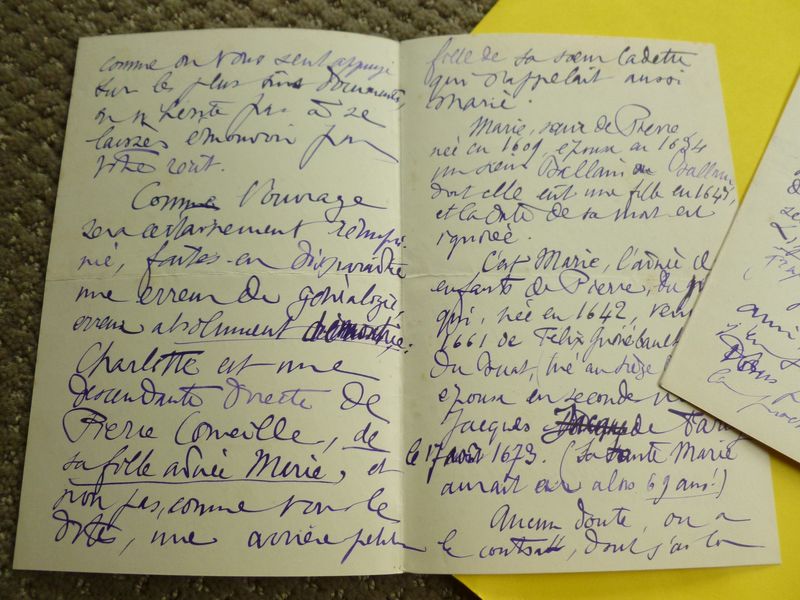 comme on vous sent appuyé
sur les plus sûrs documents,
on n'hésite pas à se
laisser émouvoir par
votre récit.
Comme l'ouvrage
sera certainement réimpri-
mé, faites-en disparaître
une erreur de généalogie,
erreur absolument démontrée:
Charlotte est une
descendante directe de
Pierre Corneille, de
sa fille aînée Marie, et
non pas, comme vous le
dites, une arrière petite
fille de sa sœur cadette
qui s'appelait aussi
Marie.
Marie, sœur de Pierre
née en 1609, épousa en 1634
un sieur Ballain ou Ballam
dont elle eut une fille en 1643,
et la date de sa mort est
ignorée.
C'est Marie, l'aînée d
enfants de Pierre, du
qui, née en 1642, veu
1661 de Félix
du Buat, (tué au siège
épousa en seconde
Jacques de Farcy
le 17 août 1673. (Sa tante Marie
aurait eu alors 69 ans!)
Aucun doute, on a
le contrat, dont j'ai